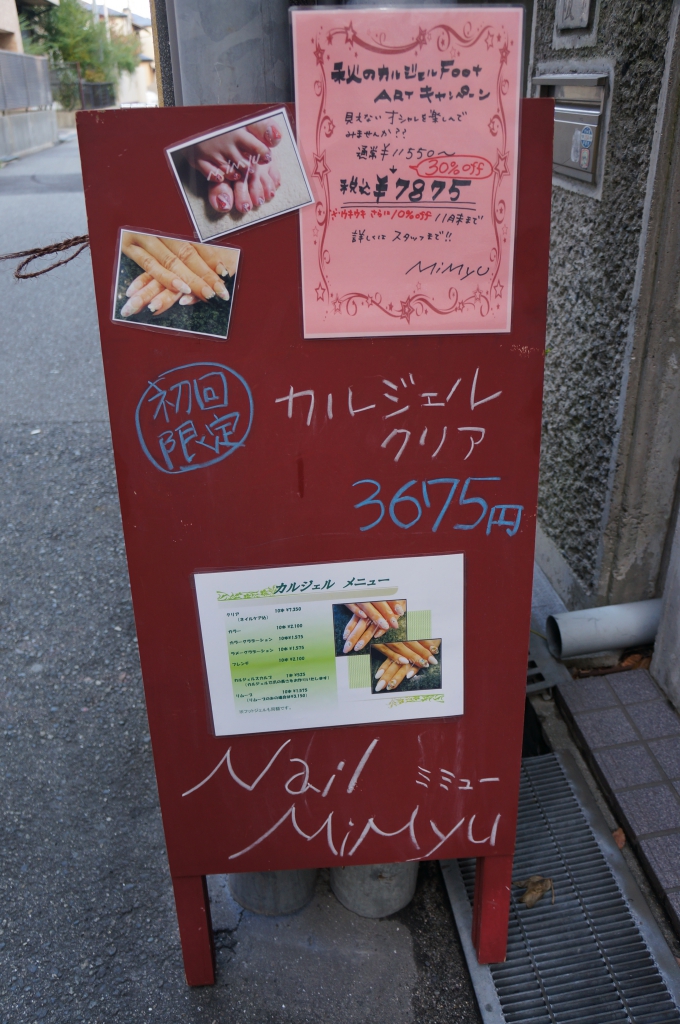 秋のカルジェルFoot
ARTキャンペーン
見えないオシャレを楽しんで
みませんか??
通常¥11550〜
30%off
税込¥7875
さらに10%off 11月末まで
詳しくは スタッフまで!!
MiMyu
MiMyu
初回
限定
カルジェル
クリア
3675円
カルジェル メニュー
クリア 10本 ¥7,350
(ネイルケア込)
カラー 10本 ¥2,100
カラーグラデーション 10本¥1,575
ラメーグラデーション 10本 ¥1,575
フレンチ 10本 ¥2,100
カルジェルスカルプ 1本 ¥525
リムーブ 10本 ¥1,575
Nail ミミュー
MiMyu